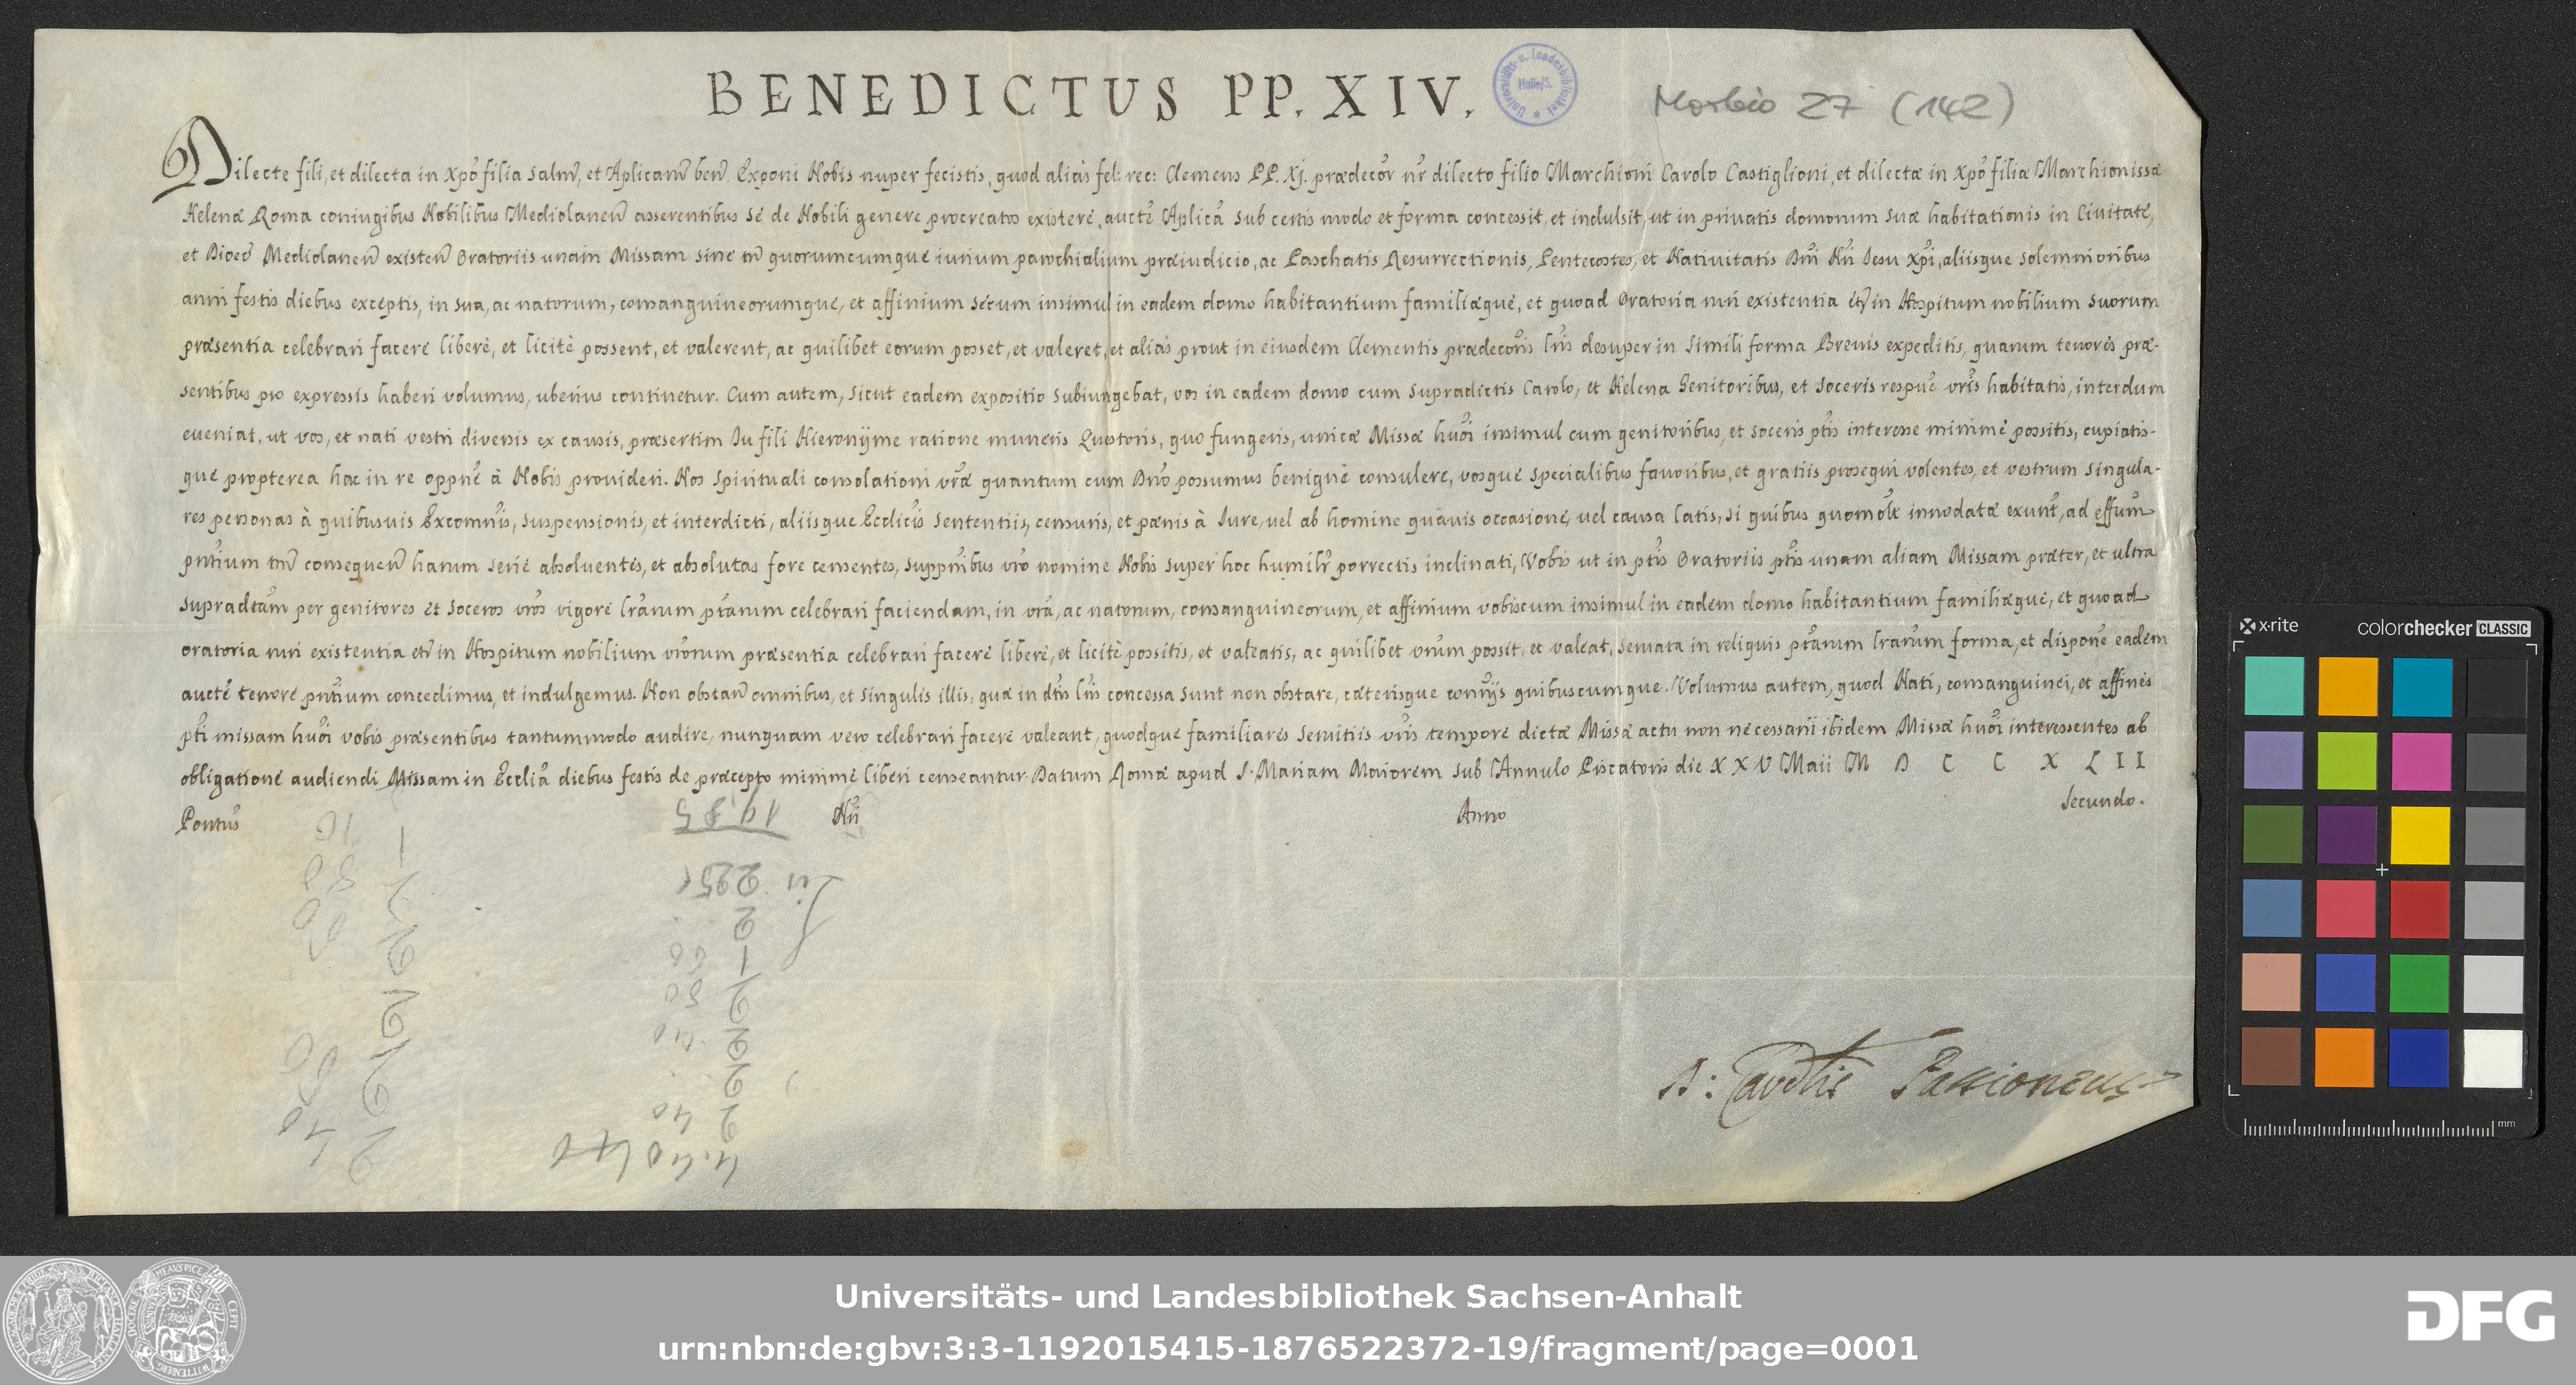 BENEDICTUS PP. XIV.
Morbio 27 (142)
Dilecte fili, et dilecta in Xpõ filia salm̃, et Aplicam̃ ben̄. Exponi Nobis nuper fecistis, quod aliàs fel: rec: Clemens PP. XJ. prædecõr nr̃ dilecto filio Marchioni Carolo Castiglioni, et dilectæ in Xpõ filiæ Marchionissæ
Helenæ Roma coniugibus Nobilibus Mediolanen̄ asserentibus se de Nobili genere procreatos existere, auctẽ Aplicã sub certis modo et forma concessit, et indulsit, ut in privatis domorum suæ habitationis in Civitate,
et Diœc̃ Mediolanen̄ existen̄ Oratoriis unam Missam sine tñ quorumcumque iurium parochialium præiudicio, ac Paschatis Resurrectionis, Pentecostes, et Nativitatis Dñi Nr̃i Jesu Xpi, aliisque solemnioribus
anni festis diebus exceptis, in sua, ac natorum, consanguineorumque, et affinium secum insimul in eadem domo habitantium familiæque, et quoad Oratoria ruri existentia et̃ in Hospitum nobilium suorum
præsentia celebrari facere liberè, et licitè possent, et valerent, ac quilibet eorum posset, et valeret, et aliàs prout in eiusdem Clementis prædecõris lr̃is desuper in simili forma Brevis expeditis, quarum tenores præ-
sentibus pro expressis haberi volumus, uberius continetur. Cum autem, sicut eadem expositio subiungebat, vos in eadem domo cum supradictis Carolo, et Helena Genitoribus, et soceris respuẽ vr̃is habitatis, interdum
eveniat, ut vos, et nati vestri diversis ex causis, præsertim Tu fili Hieronyme ratione muneris Questoris, quo fungeris, unicæ Missæ huõi insimul cum genitoribus, et soceris pt̃is interesse minime possitis, cupiatis-
que propterea hac in re oppnẽ à Nobis provideri. Nos spirituali consolationi vr̃æ quantum cum Dnõ possumus benignè consulere, vosque specialibus favoribus, et gratiis prosequi volentes, et vestrum singula-
res personas à quibusvis Excomnĩs, suspensionis, et interdicti, aliisque Ecclicĩs sententiis, censuris, et pænis à Jure, vel ab homine quavis occasione, vel causa latis, si quibus quomolt̃ innodatæ exunt̃, ad effum̃
pñtium tm̃ consequen̄ harum serie absolventes, et absolutas fore censentes, suppnĩbus vrõ nomine Nobis super hoc humilr̃ porrectis inclinati, Vobis ut in pt̃is Oratoriis pt̃is unam aliam Missam præter, et ultra
supradtam̃ per genitores et soceros vr̃os vigore lr̃arum pt̃arum celebrari faciendam, in vrã, ac natorum, consanguineorum, et affinium vobiscum insimul in eadem domo habitantium familiæque, et quoad
oratoria ruri existentia et̃ in Hospitum nobilium vr̃orum præsentia celebrari facere liberè, et licitè possitis, et valeatis, ac quilibet vr̃um possit, et valeat, servata in reliquis pt̃arum lr̃arum forma, et disponẽ eadem
auctẽ tenore pñtium concedimus, et indulgemus. Non obstan̄ omnibus, et singulis illis, quæ in dt̃is lr̃is concessa sunt non obstare, cæterisque conr̃ijs quibuscumque. Volumus autem, quod Nati, consanguinei, et affines
pt̃i missam huõi vobis præsentibus tantummodo audire, nunquam vero celebrari facere valeant, quodque familiares servitiis vr̃is tempore dictæ Missæ actu non necessarii ibidem Missæ huõi interessentes ab
obligatione audiendi Missam in Ecclĩa diebus festis de præcepto minime liberi censeantur. Datum Romæ apud S. Mariam Maiorem sub Annulo Piscatoris die XXV Maii M D C C X L I I
Pontus̃ Nr̃i Anno Secundo.
D: Cardlis Passioneus
Universitäts u. Landesbibliothek Halle/S.
x-rite colorchecker CLASSIC
mm
Universitäts- und Landesbibliothek Sachsen-Anhalt
urn:nbn:de:gbv:3:3-1192015415-1876522372-19/fragment/page=0001
DFG